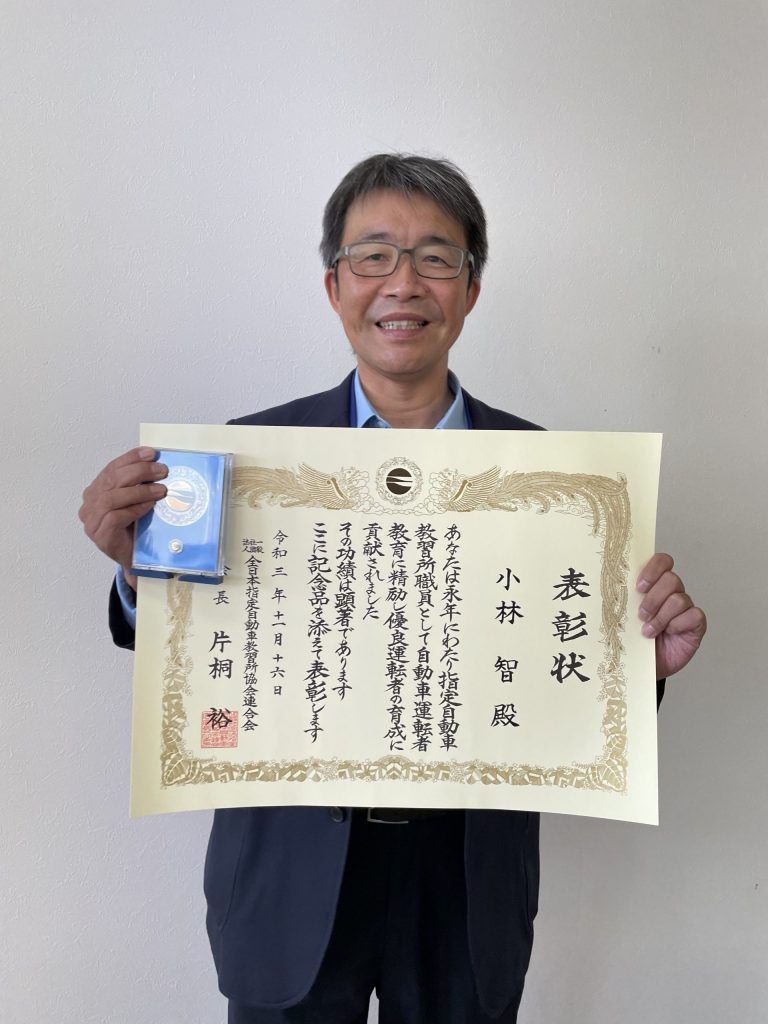 表彰状
小林 智 殿
あなたは永年にわたり指定自動車
教習所職員として自動車運転者
教育に精励し優良運転者の育成に
貢献されました
その功績は顕著であります
ここに記念品を添えて表彰します
令和三年十一月十六日
一般社団法人 全日本指定自動車教習所協会連合会
会長 片桐 裕